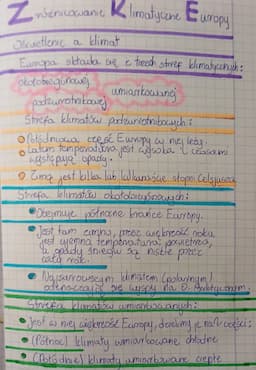 Zróżnicowanie Klimatyczne Europy
Oświetlenie a klimat
Europa składa się z trzech stref klimatycznych:
okołobiegunowej
umiarkowanej
podzwrotnikowej
Strefa klimatów podzwrotnikowych:
Południowa część Europy w niej leży.
Latem temperatura jest wysoka i czasami
występują opady.
Zimą jest kilka lub kilkanaście stopni Celsjusza
Strefa klimatów okołobiegunowych:
Obejmuje północne krańce Europy.
Jest tam zimno, przez większość roku
jest ujemna temperatura powietrza,
a opady śniegu są niskie przez
cały rok.
Najsurowszym klimatem (polarnym)
odznaczają się wyspy na O. Arktycznym.
Strefa klimatów umiarkowanych:
Jest w niej większość Europy, dzielimy je na części:
(Północ) klimaty umiarkowane chłodne
(Południe) klimaty umiarkowane ciepłe